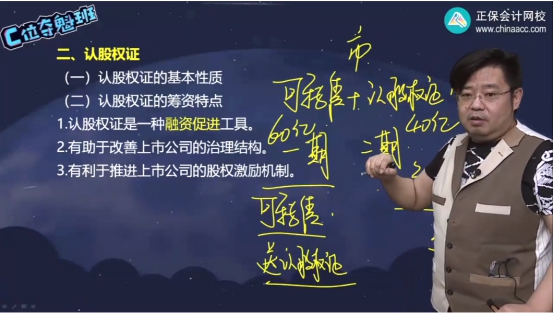 C位夺魁班
正保会计网校
www.chinaacc.com
二、认股权证
（一）认股权证的基本性质
（二）认股权证的筹资特点
1.认股权证是一种融资促进工具。
2.有助于改善上市公司的治理结构。
3.有利于推进上市公司的股权激励机制。
可转售+认股权证
60亿 40亿
一期 二期
可转售.
送认股权证